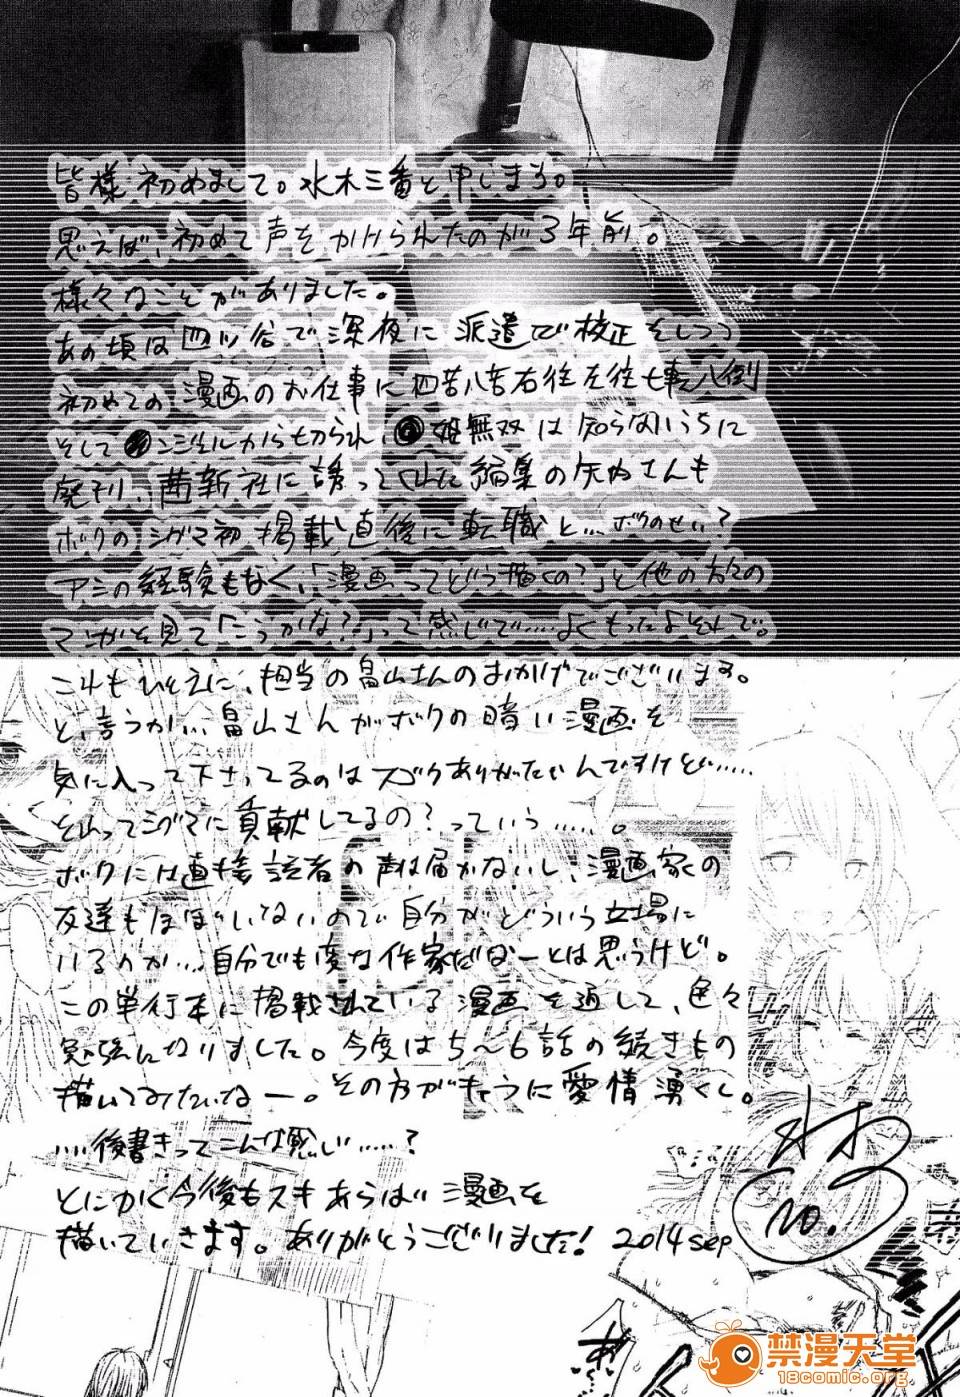 皆様初めまして。水木三番と申します。
思えば、初めて声をかけられたのが3年前。
様々なことがありました。
あの頃は四ツ谷で深夜に派遣で校正をしつつ
初めての漫画のお仕事に四苦八苦右往左往七転八倒
そして ンジェルから切られ、 姫無双は知らないうちに
廃刊、茜新社に誘ってくれた編集の さんも
ボクのシグマ初掲載直後に転職と…ボクのせい?
アシの経験もなく、「漫画ってどう描くの?」と他の方々の
マンガを見て「こうかな?」って感じで……よくもったよそれで。
これもひとえに、担当の畠山さんのおかげでございます。
と、言うか…畠山さんがボクの暗い漫画を
気に入って下さってるのはスゴクありがたいんですけど……
それってシグマに貢献してるの?っていう……。
ボクには直接読者の声は届かないし、漫画家の
友達もほぼいないので自分がどういう立場に
いるのか…自分でも変な作家だなーとは思うけど。
この単行本に掲載されている漫画を通して、色々
勉強になりました。今度は5〜6話の続きもの
描いてみたいなー。その方がキャラに愛情湧くし。
…後書きってこんな感じ……?
とにかく今後もスキあらば漫画を
描いていきます。ありがとうございました! 2014 sep
水木
NO.
禁漫天堂
18comic.org